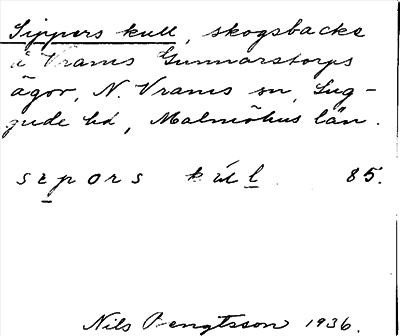 Sippers kull, skogsbacke
å Vrams Gunnarstorps
ägor, N. Vrams sn, Lug-
gude hd, Malmöhus län.
sepors kúl 85.
Nils Bengtsson 1936.